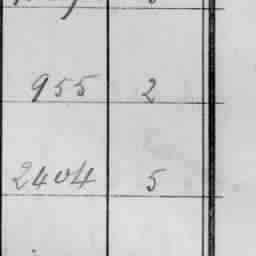 955 2
2404 5